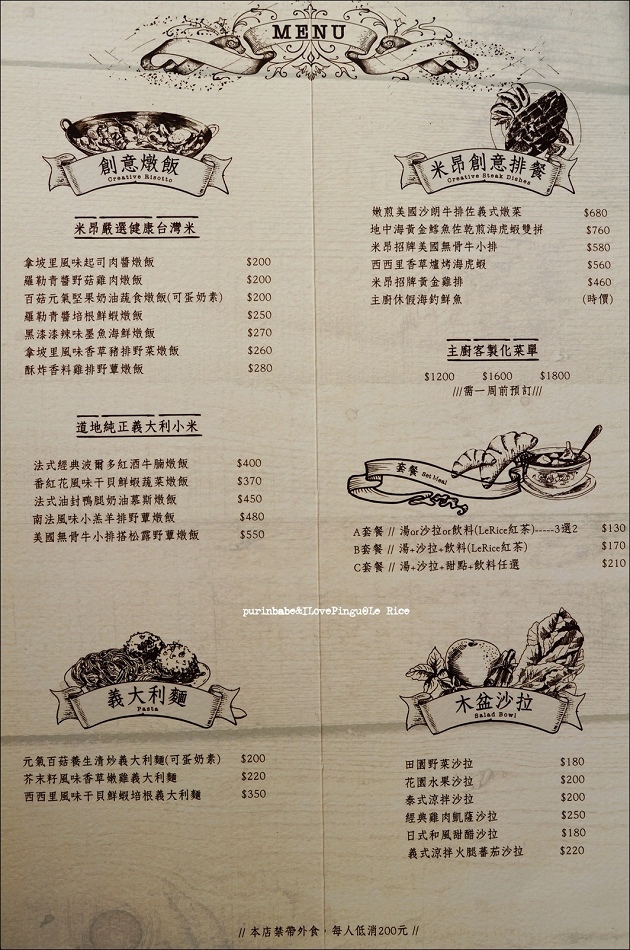 MENU
創意燉飯
Creative Risotto
米昂嚴選健康台灣米
拿坡里風味起司肉醬燉飯 $200
羅勒青醬野菇雞肉燉飯 $200
百菇元氣堅果奶油蔬食燉飯(可蛋奶素) $200
羅勒青醬培根鮮蝦燉飯 $250
黑漆漆辣味墨魚海鮮燉飯 $270
拿坡里風味香草豬排野菜燉飯 $260
酥炸香料雞排野蕈燉飯 $280
道地純正義大利小米
法式經典波爾多紅酒牛腩燉飯 $400
番紅花風味干貝鮮蝦蔬菜燉飯 $370
法式油封鴨腿奶油慕斯燉飯 $450
南法風味小羔羊排野蕈燉飯 $480
美國無骨牛小排搭松露野蕈燉飯 $550
義大利麵
Pasta
元氣百菇養生清炒義大利麵(可蛋奶素) $200
芥末籽風味香草嫩雞義大利麵 $220
西西里風味干貝鮮蝦培根義大利麵 $350
米昂創意排餐
Creative Steak Dishes
嫩煎美國沙朗牛排佐義式燉菜 $680
地中海黃金鱈魚佐乾煎海虎蝦雙拼 $760
米昂招牌美國無骨牛小排 $580
西西里香草爐烤海虎蝦 $560
米昂招牌黃金雞排 $460
主廚休假海釣鮮魚 (時價)
主廚客製化菜單
$1200 $1600 $1800
///需一周前預訂///
套餐 Set Meal
A套餐 // 湯or沙拉or飲料(LeRice紅茶)-----3選2 $130
B套餐 // 湯+沙拉+飲料(LeRice紅茶) $170
C套餐 // 湯+沙拉+甜點+飲料任選 $210
purinbabe&ILovePingu@Le Rice
木盆沙拉
Salad Bowl
田園野菜沙拉 $180
花園水果沙拉 $200
泰式涼拌沙拉 $200
經典雞肉凱薩沙拉 $250
日式和風甜醋沙拉 $180
義式涼拌火腿蕃茄沙拉 $220
// 本店禁帶外食，每人低消200元 //